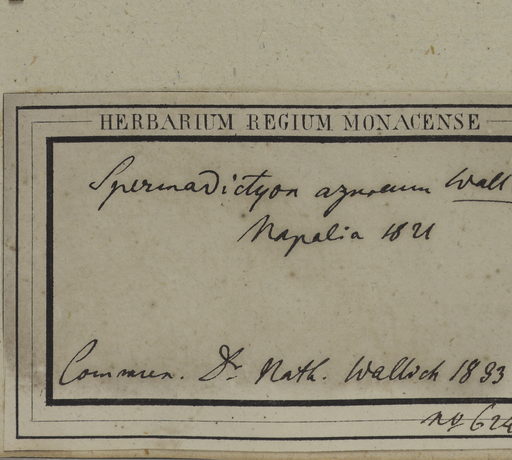 HERBARIUM REGIUM MONACENSE
Spermadictyon azureum Wall
Napalia 1821
Commun. Dr. Nath. Wallich 1833